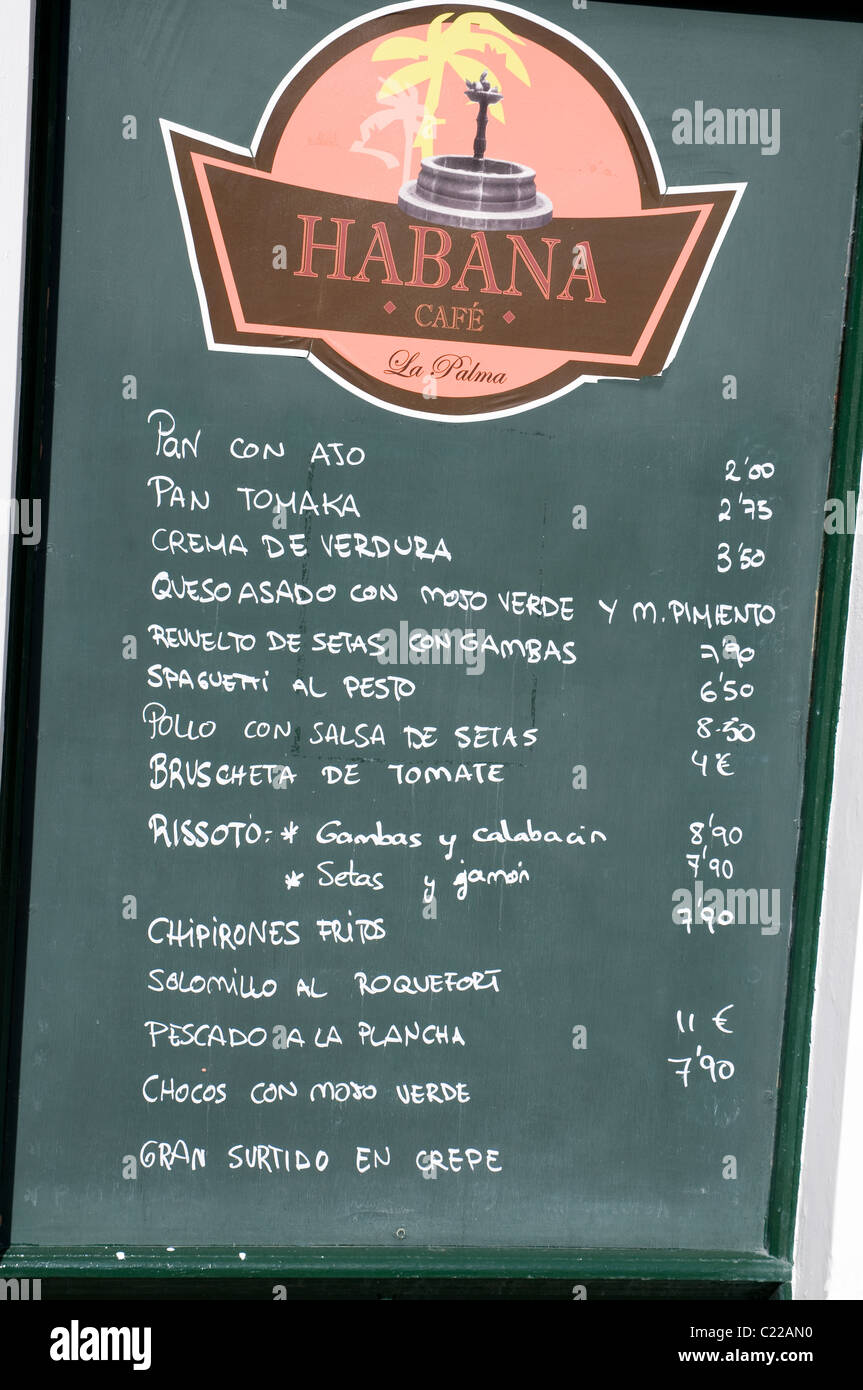 HABANA
CAFÉ
La Palma
PAN CON AJO 2'00
PAN TOMAKA 2'75
CREMA DE VERDURA 3'50
QUESO ASADO CON MOJO VERDE Y M. PIMIENTO
REVUELTO DE SETAS CON GAMBAS 7'90
SPAGUETTI AL PESTO 6'50
POLLO CON SALSA DE SETAS 8-50
BRUSCHETA DE TOMATE 4€
RISSOTO:- * Gambas y calabacin 8'90
* Setas y jamón 7'90
CHIPIRONES FRITOS 7'90
SOLOMILLO AL ROQUEFORT
PESCADO A LA PLANCHA 11 €
CHOCOS CON MOJO VERDE 7'90
GRAN SURTIDO EN CREPE
alamy
Image ID: C22AN0
www.alamy.com